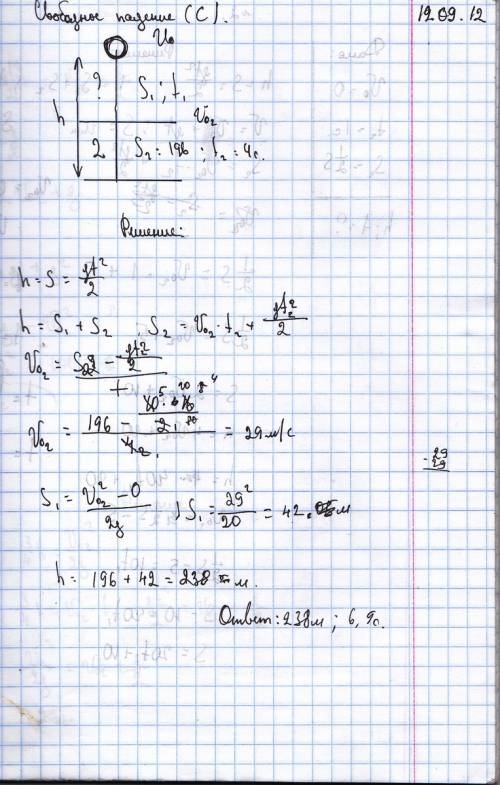 Свободное падение (С).
12.09.12
V₀
?
S₁ ; t₁
h
V₀₂
2
S₂ = 196 ; t₂ = 4с.
Решение:
h = S = gt²/2
h = S₁ + S₂ , S₂ = V₀₂ · t₂ + gt₂²/2
V₀₂ = (S₂ - gt₂²/2)/t
V₀₂ = = 29 м/с
29
29
S₁ = (V₀₂² - 0)/2g ; S₁ = 29²/20 = 42. м
h = 196 + 42 = 238 м.
Ответ: 238м ; 6,9с.